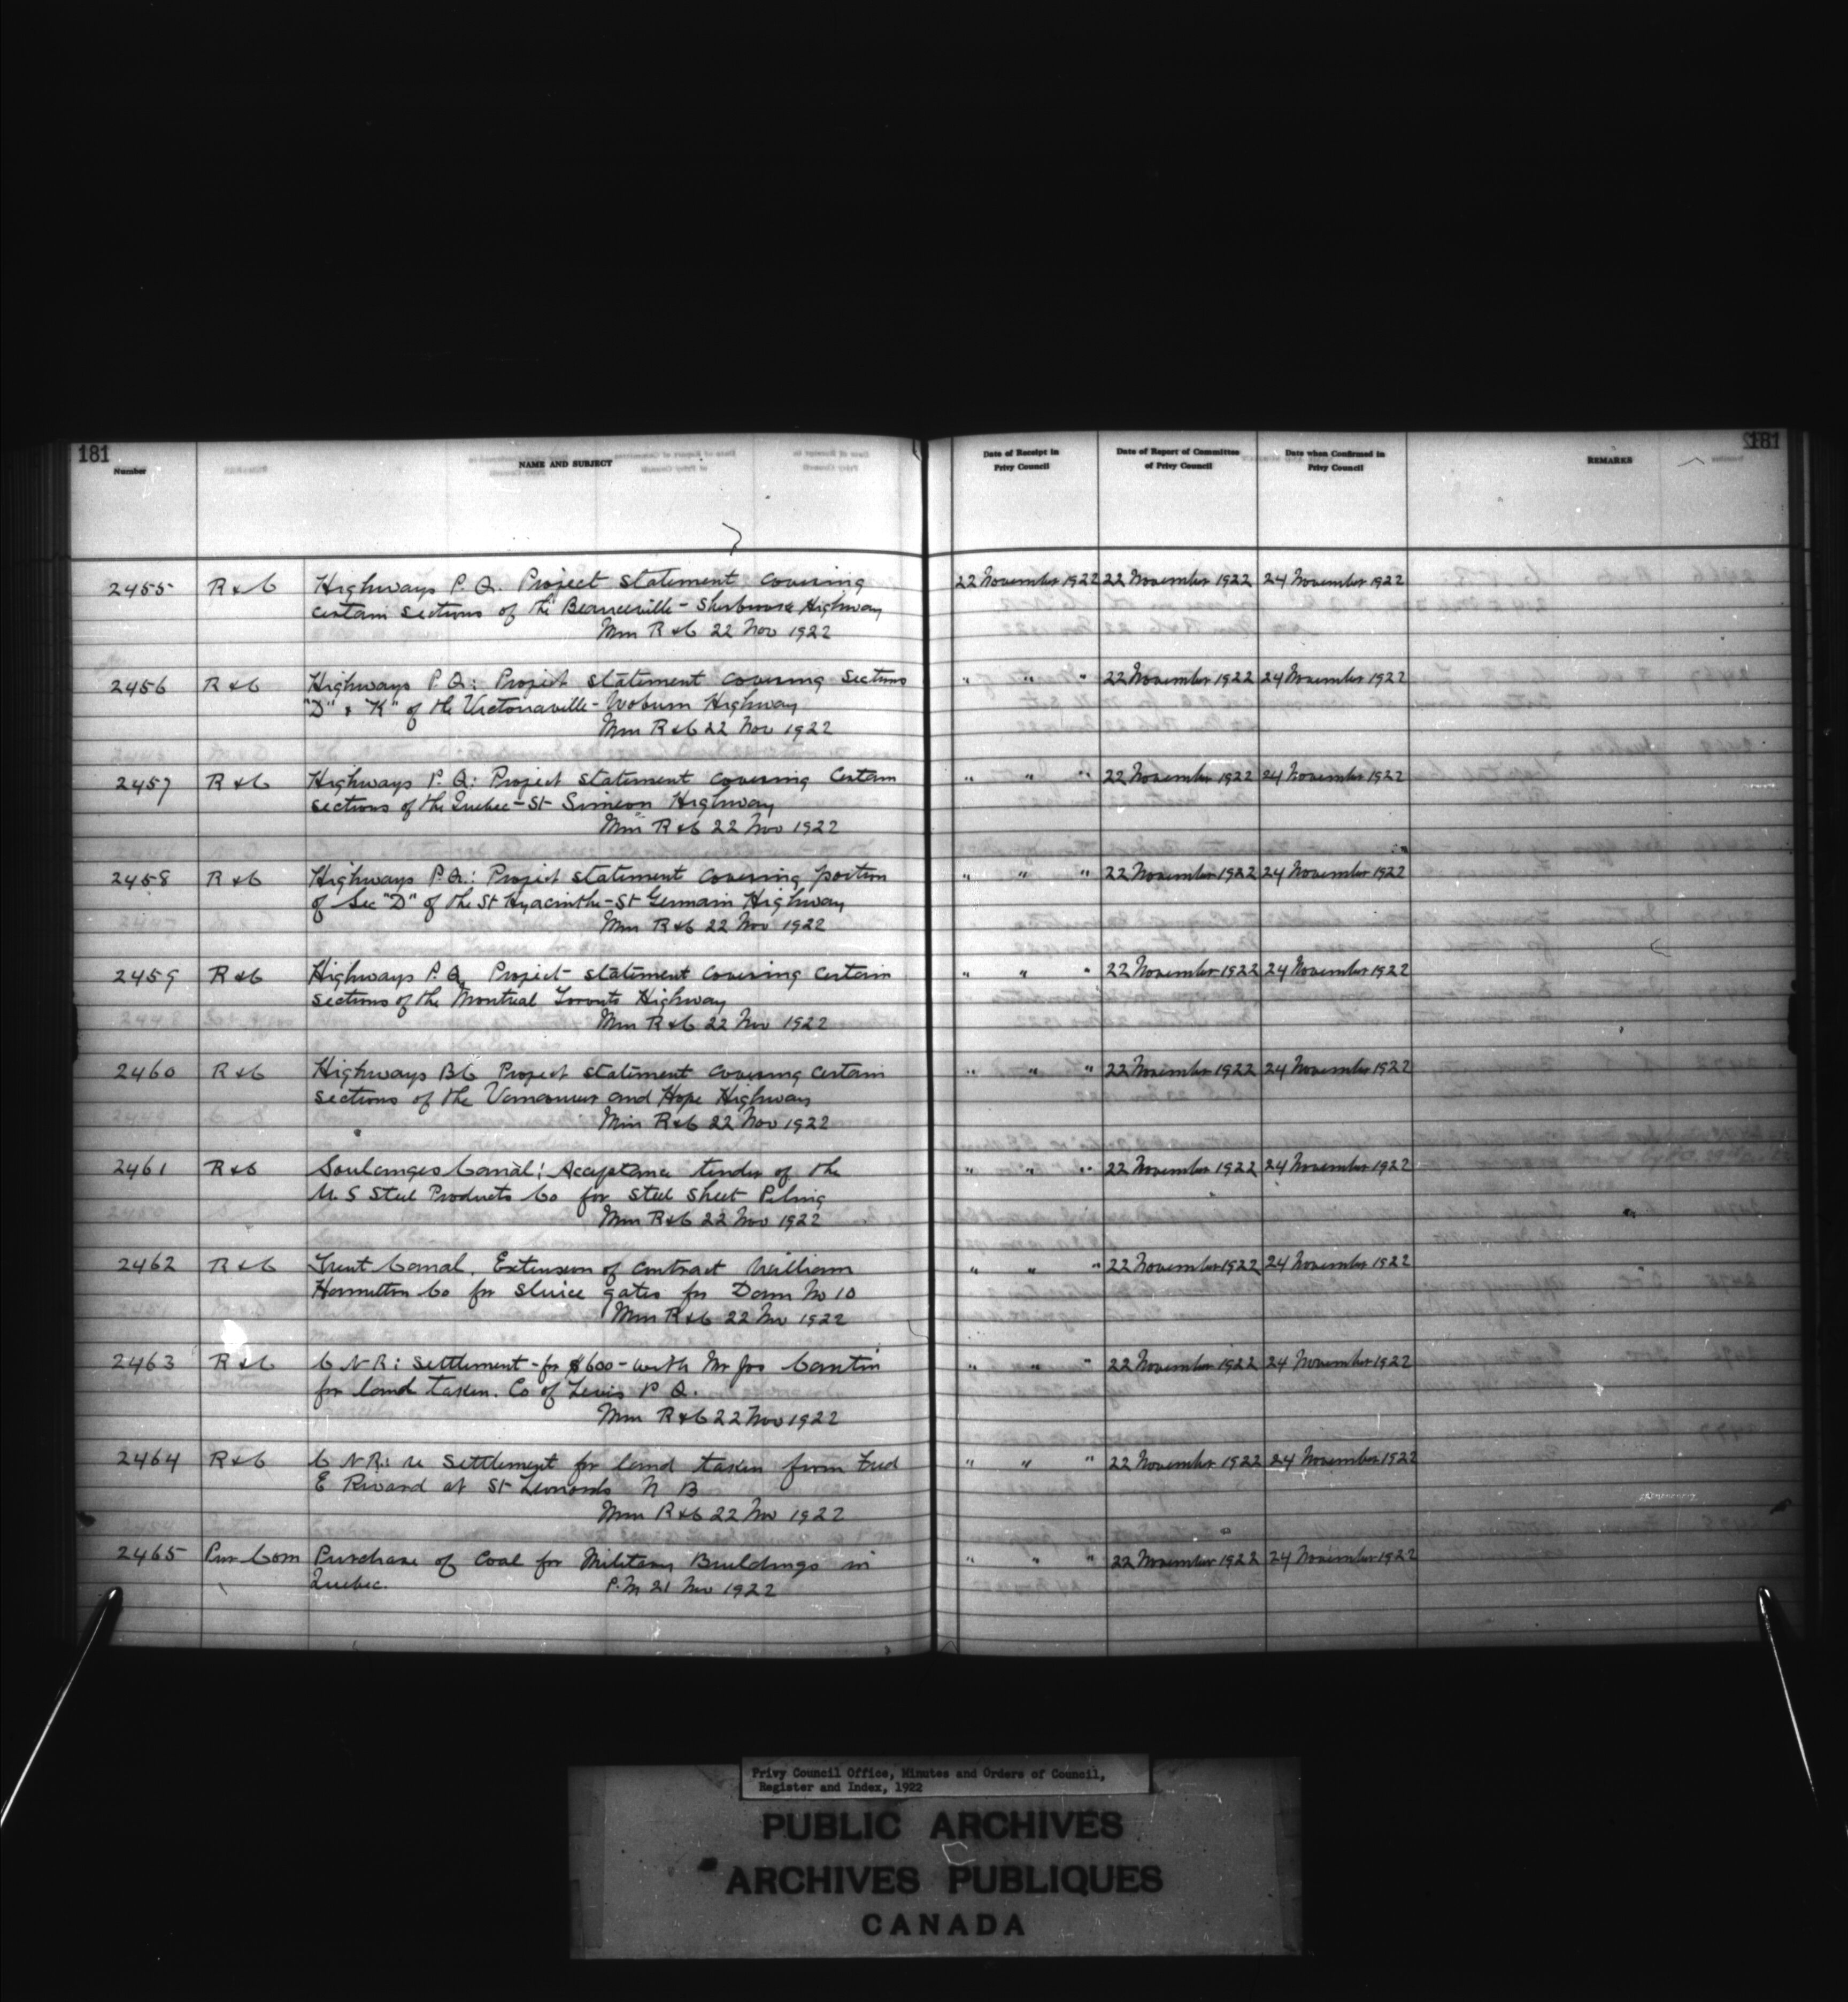 181
181
Number
NAME AND SUBJECT
Date of Receipt in Privy Council
Date of Report of Committee of Privy Council
Date when Confirmed in Privy Council
REMARKS
2455 R & C Highways P. Q. Project statement covering 22 November 1922 22 November 1922 24 November 1922
certain sections of the Beauceville - Sherbrooke Highway
Min R & C 22 Nov 1922
2456 R & C Highways P Q : Project statement covering sections " " " 22 November 1922 24 November 1922
"D" & "K" of the Victoriaville - Woburn Highway
Min R & C 22 Nov 1922
2457 R & C Highways P. Q : Project statement covering certain " " " 22 November 1922 24 November 1922
sections of the Quebec - St Simeon Highway
Min R & C 22 Nov 1922
2458 R & C Highways P.Q. : Project statement covering portion " " " 22 November 1922 24 November 1922
of Sec "D" of the St Hyacinthe - St Germain Highway
Min R & C 22 Nov 1922
2459 R & C Highways P. Q Project statement covering certain " " " 22 November 1922 24 November 1922
sections of the Montreal Toronto Highway
Min R & C 22 Nov 1922
2460 R & C Highways B C Project statement covering certain " " " 22 November 1922 24 November 1922
sections of the Vancouver and Hope Highway
Min R & C 22 Nov 1922
2461 R & C Soulanges Canal : Acceptance tender of the " " " 22 November 1922 24 November 1922
U S Steel Products Co for steel sheet Piling
Min R & C 22 Nov 1922
2462 R & C Trent Canal. Extension of contract William " " " 22 November 1922 24 November 1922
Hamilton Co for sluice gates for Dam No 10
Min R & C 22 Nov 1922
2463 R & C C N R : settlement - for $600 - with Mr Jos Cantin " " " 22 November 1922 24 November 1922
for land taken. Co of Levis P Q.
Min R & C 22 Nov 1922
2464 R & C C N R : re settlement for land taken from Fred " " " 22 November 1922 24 November 1922
E Rivard at St Leonards N B
Min R & C 22 Nov 1922
2465 Pur Com Purchase of Coal for Military Buildings in " " " 22 November 1922 24 November 1922
Quebec. P.M 21 Nov 1922
Privy Council Office, Minutes and Orders of Council,
Register and Index, 1922
PUBLIC ARCHIVES
ARCHIVES PUBLIQUES
CANADA